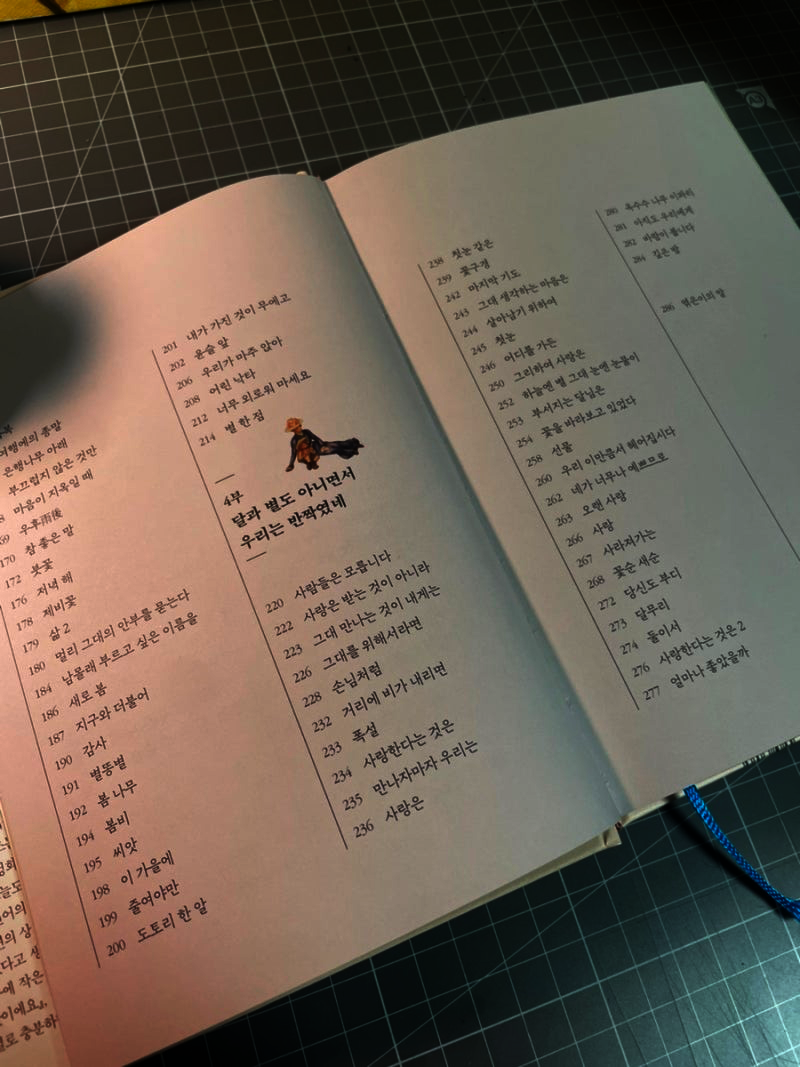 여행에의 종말
은행나무 아래
부끄럽지 않은 것만
마음이 지옥일 때
우후雨後
170 참 좋은 말
172 붓꽃
176 저녁 해
178 제비꽃
179 삶 2
180 멀리 그대의 안부를 묻는다
184 남몰래 부르고 싶은 이름을
186 새로 봄
187 지구와 더불어
190 감사
191 별똥별
192 봄 나무
194 봄비
195 씨앗
198 이 가을에
199 줄여야만
200 도토리 한 알
201 내가 가진 것이 무에고
202 윤슬 앞
206 우리가 마주 앉아
208 어린 낙타
212 너무 외로워 마세요
214 별 한 점
4부
달과 별도 아니면서
우리는 반짝였네
220 사람들은 모릅니다
222 사랑은 받는 것이 아니라
223 그대 만나는 것이 내게는
226 그대를 위해서라면
228 손님처럼
232 거리에 비가 내리면
233 폭설
234 사랑한다는 것은
235 만나자마자 우리는
236 사랑은
238 첫눈 같은
239 꽃구경
242 마지막 기도
243 그대 생각하는 마음은
244 살아남기 위하여
245 첫눈
246 어디를 가든
250 그리하여 사랑은
252 하늘엔 별 그대 눈엔 눈물이
253 부서지는 달님은
254 꽃을 바라보고 있었다
258 선물
260 우리 이만큼서 헤어집시다
262 네가 너무나 예쁘므로
263 오랜 사랑
266 사랑
267 사라져가는
268 꽃순 새순
272 당신도 부디
273 달무리
274 둘이서
276 사랑한다는 것은 2
277 얼마나 좋았을까
280 옥수수 나무 이파리
281 아직도 우리에게
282 바람이 붑니다
284 깊은 밤
286 엮은이의 말